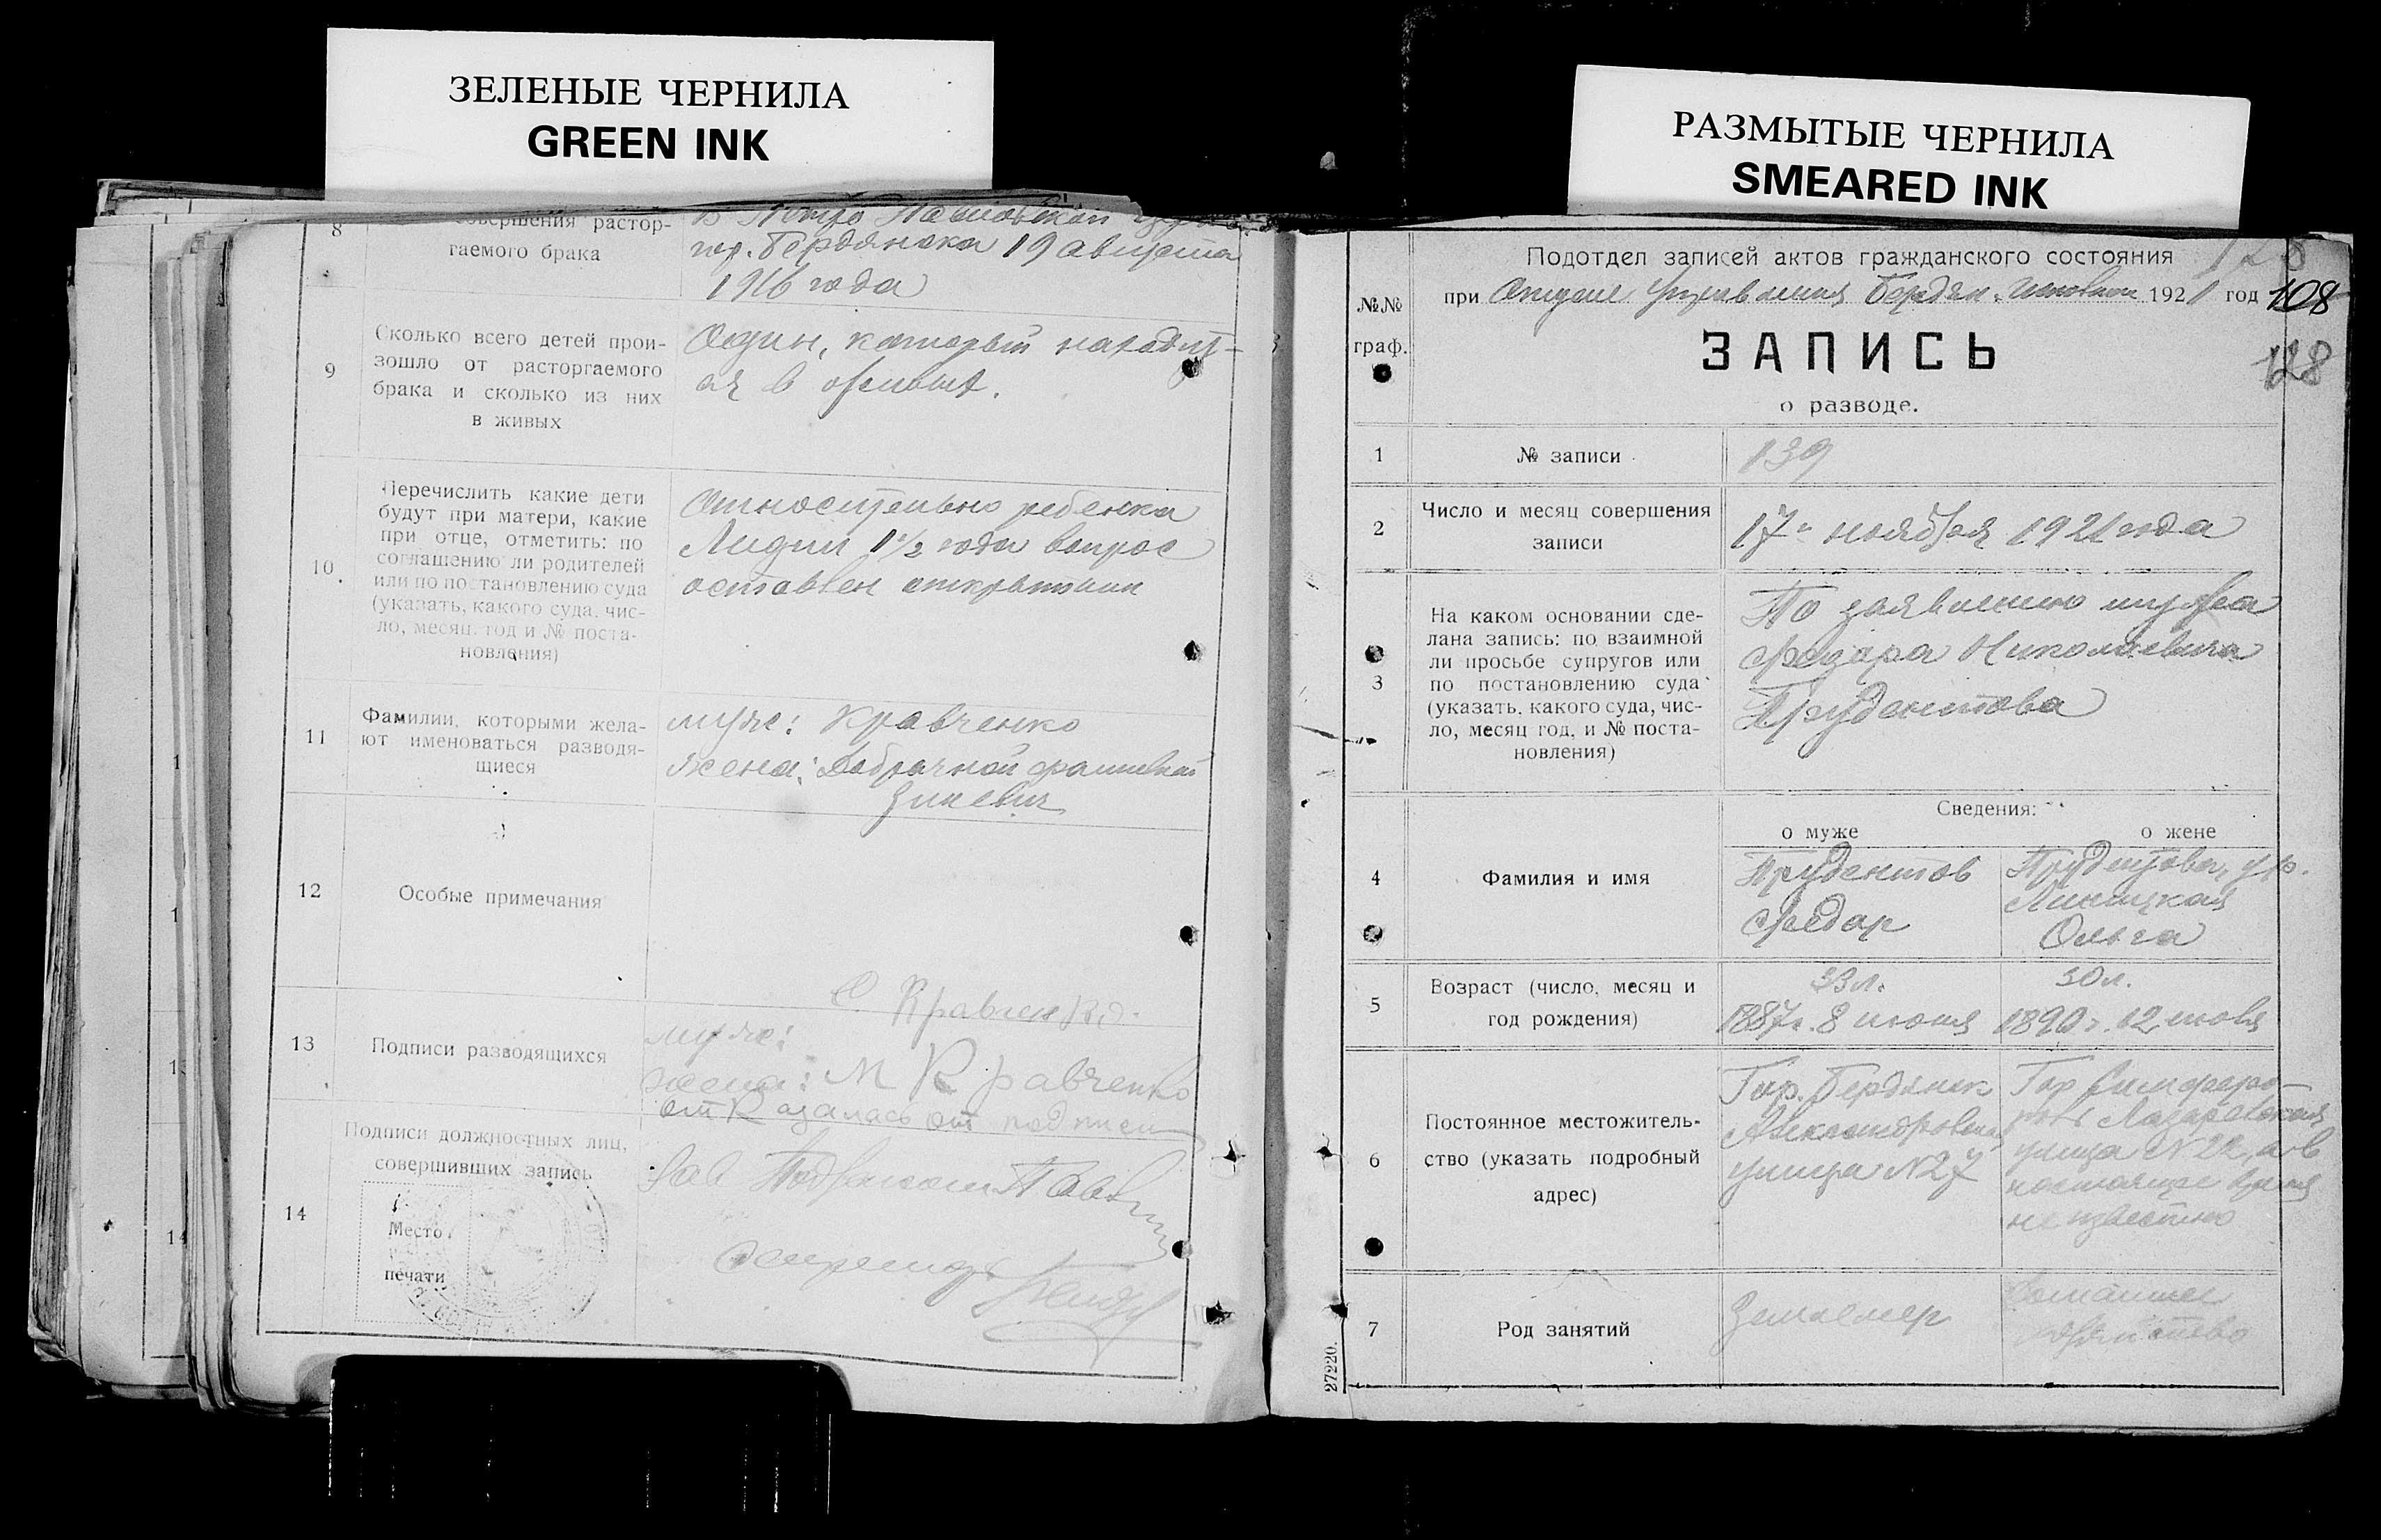 ЗЕЛЕНЫЕ ЧЕРНИЛА
GREEN INK
РАЗМЫТЫЕ ЧЕРНИЛА
SMEARED INK
8
совершения растор-
гаемого брака
В Петро Павловской
гор. Бердянска 19 августа
1916 года
9
Сколько всего детей прои-
зошло от расторгаемого
брака и сколько из них
в живых
Один, который находит-
ся в живых.
10
Перечислить какие дети
будут при матери, какие
при отце, отметить: по
соглашению ли родителей
или по постановлению суда
(указать, какого суда, чис-
ло, месяц, год и № поста-
новления)
Относительно ребенка
Лидии 1 1/2 года вопрос
оставлен открытым
11
Фамилии, которыми жела-
ют именоваться разводя-
щиеся
муж: Кравченко
жена: Добрачной фамилией
Зиневич
12
Особые примечания
13
Подписи разводящихся
Кравченко
муж:
жена: М Кравченко
отказалась от подписи
14
Подписи должностных лиц,
совершивших запись
Место
печати
Зав
Подотдел записей актов гражданского состояния
при Отделе Управления Бердян. Исполком 1921 год
108
128
№№
граф.
ЗАПИСЬ
о разводе.
1
№ записи
139
2
Число и месяц совершения
записи
17 ноября 1921 года
3
На каком основании сде-
лана запись: по взаимной
ли просьбе супругов или
по постановлению суда
(указать, какого суда, чис-
ло, месяц год, и № поста-
новления)
По заявлению мужа
Федора Николаевича
Прудентова
Сведения:
о муже
о жене
4
Фамилия и имя
Прудентов
Федор
Прудентова, ур.
Ольга
5
Возраст (число, месяц и
год рождения)
33 л.
1887 г. 8 июня
30 л.
1890 г. 12 июля
6
Постоянное местожитель-
ство (указать подробный
адрес)
Гор. Бердянск
Александровская
улица № 27
Гор Симферо-
поль Лазаревская
улица № 22, а в
настоящее время
не известно
7
Род занятий
Землемер
Домашнее
хозяйство
27220.